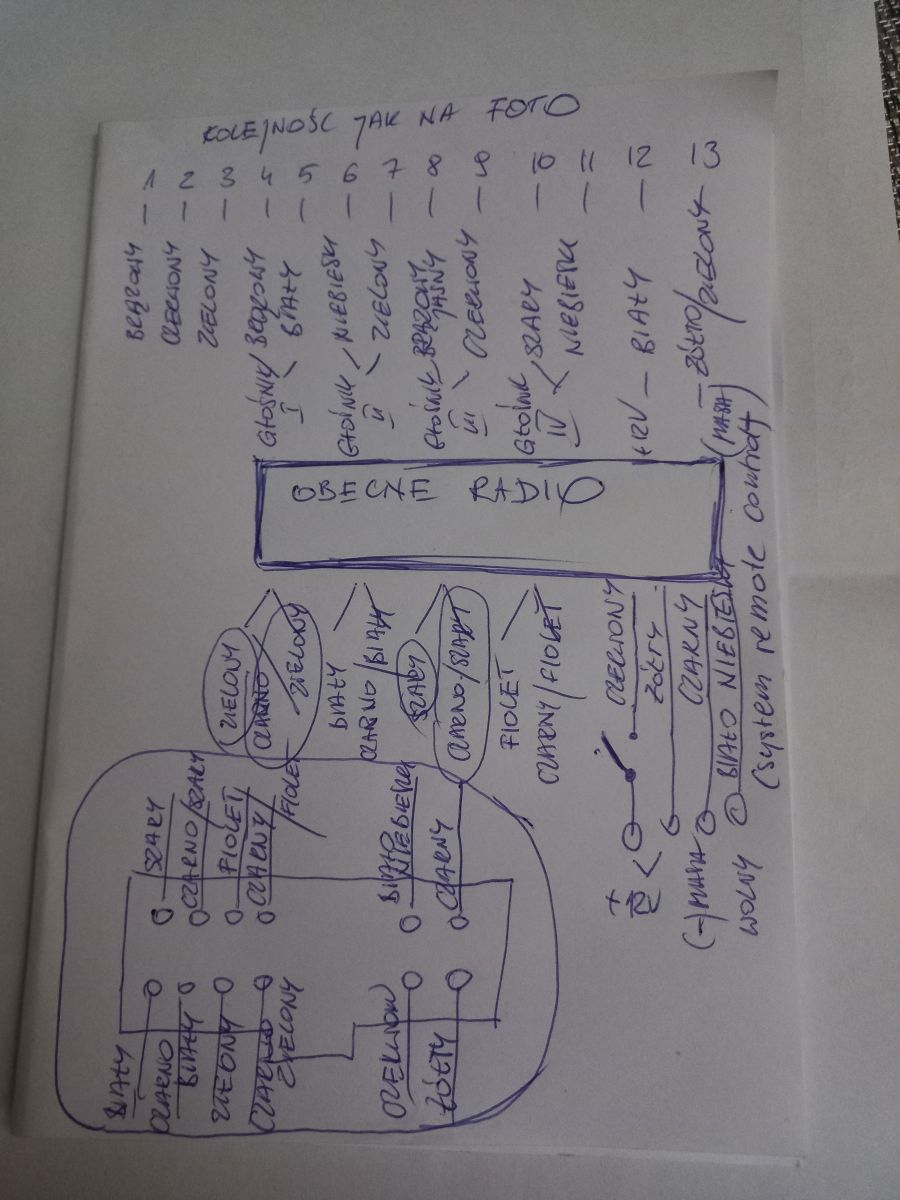 KOLEJNOŚĆ JAK NA FOTO
BRĄZOWY — 1
CZERWONY — 2
ZIELONY — 3
GŁOŚNIK I / BRĄZOWY — 4
BIAŁY — 5
GŁOŚNIK II / NIEBIESKI — 6
ZIELONY — 7
GŁOŚNIK III BRĄZOWY JASNY — 8
CZERWONY — 9
GŁOŚNIK IV / SZARY — 10
NIEBIESKI — 11
+12V — BIAŁY — 12
(MASA) — ŻÓŁTO/ZIELONY — 13
OBECNE RADIO
ZIELONY
CZARNO/ZIELONY
BIAŁY
CZARNO/BIAŁY
SZARY
CZARNO/SZARY
FIOLET
CZARNY/FIOLET
+12 CZERWONY
ŻÓŁTY
(-) MASA CZARNY
WOLNY BIAŁO NIEBIESKI
(system remote control)
BIAŁY SZARY
CZARNO BIAŁY CZARNO/SZARY
ZIELONY FIOLET
CZARNO ZIELONY CZARNY/FIOLET
CZERWONY BIAŁO NIEBIESKI
ŻÓŁTY CZARNY